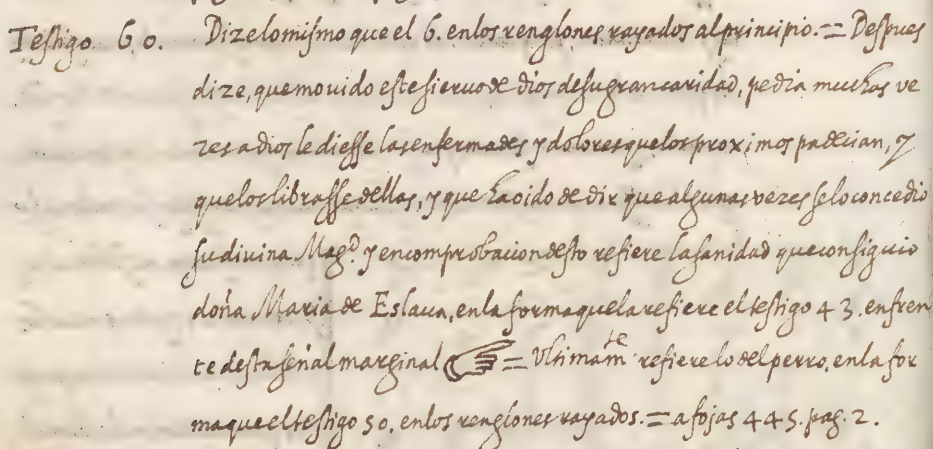 Testigo 60. Dize lo mismo que el 6. en los renglones rayados al principio.= Despues
dize, que movido este siervo de Dios de su gran caridad, pedia muchas ve
zes a dios le diesse las enfermades y dolores que los proximos padecian, y
que los librasse dellas, y que ha oido dezir que algunas vezes se lo concedio
su divina Magd. y en comprobacion desto refiere la sanidad que consiguio
doña Maria de Eslava, en la forma que la refiere el testigo 43. enfren
te desta señal marginal ☞ = Ultimamte refiere lo del perro, en la for
ma que el testigo 50. en los renglones rayados.= a fojas 445. pag. 2.